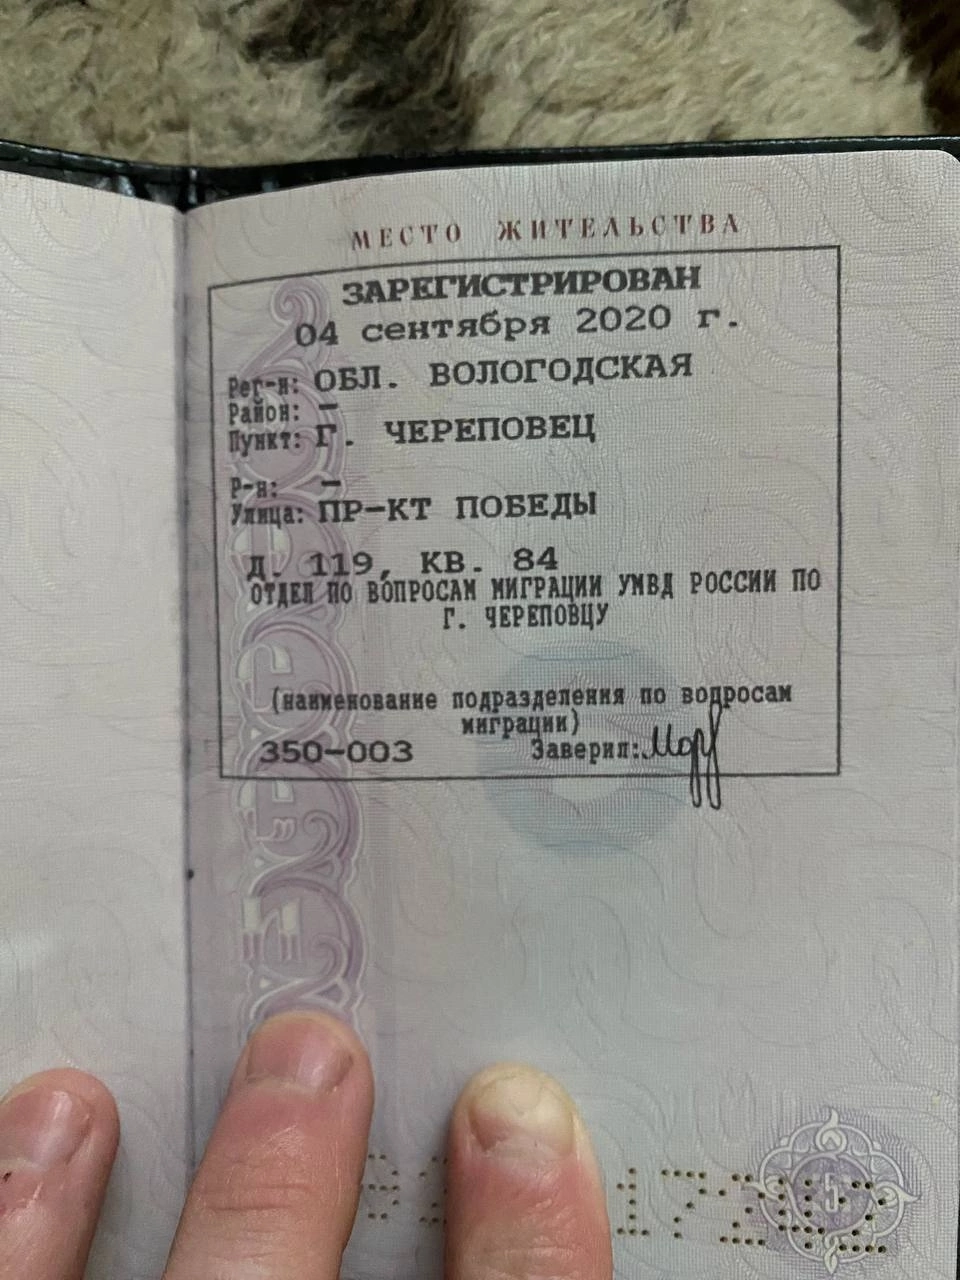 МЕСТО ЖИТЕЛЬСТВА
ЗАРЕГИСТРИРОВАН
04 сентября 2020 г.
Рег-н: ОБЛ. ВОЛОГОДСКАЯ
Район: –
Пункт: Г. ЧЕРЕПОВЕЦ
Р-н: –
Улица: ПР-КТ ПОБЕДЫ
Д. 119, КВ. 84
ОТДЕЛ ПО ВОПРОСАМ МИГРАЦИИ УМВД РОССИИ ПО
Г. ЧЕРЕПОВЦУ
(наименование подразделения по вопросам
миграции)
350-003 Заверил:
5